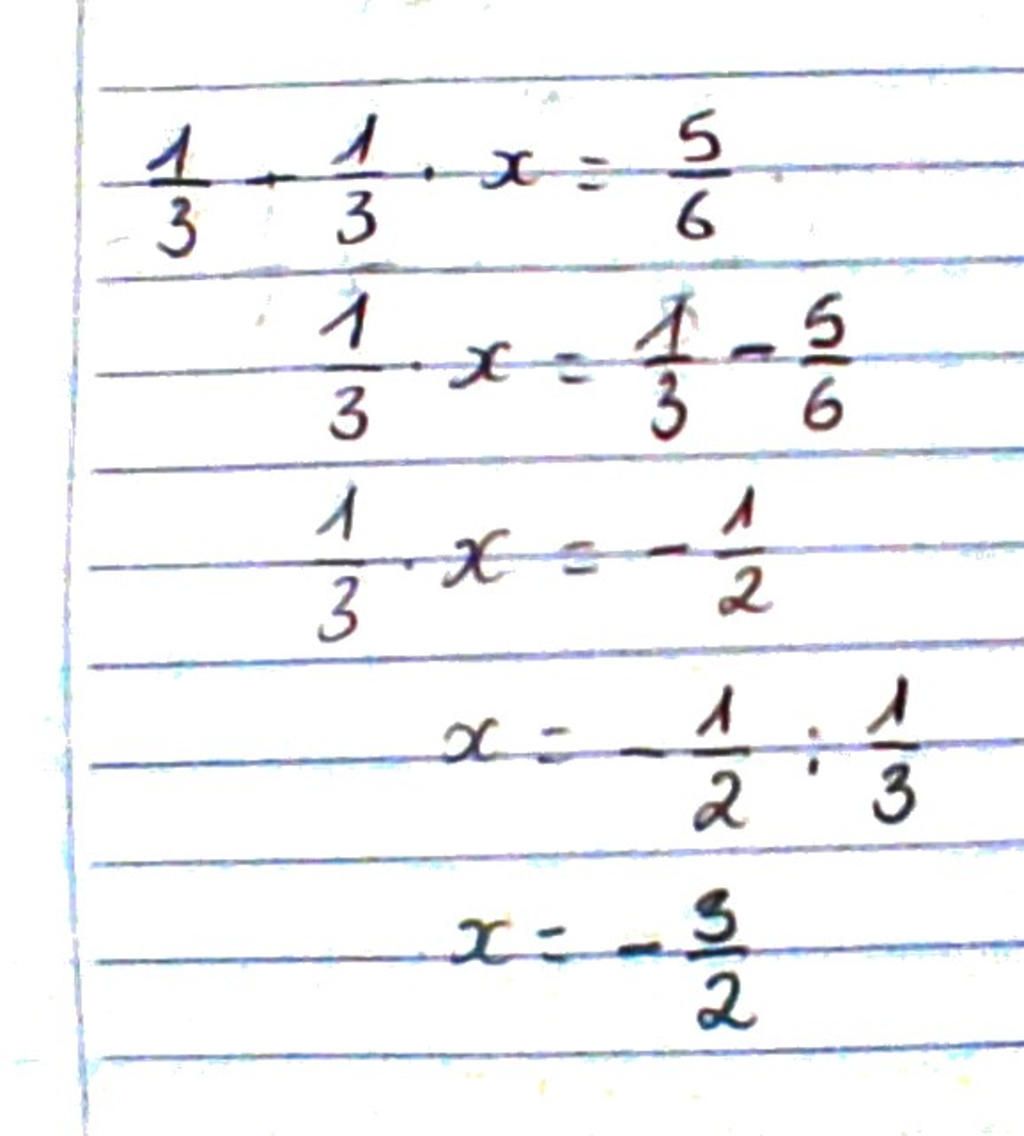 1/3 - 1/3 · x = 5/6
1/3 · x = 1/3 - 5/6
1/3 · x = - 1/2
x = - 1/2 : 1/3
x = - 3/2